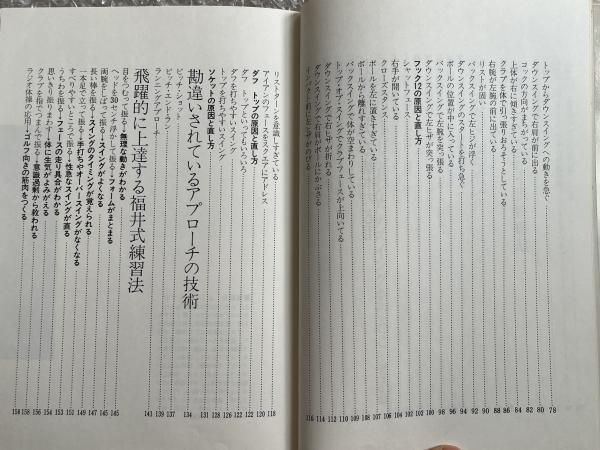 トップからダウンスイングへの動きを急ぐ……78
ダウンスイングで右肩が前に出る……80
コックの方向がまちがっている……82
上体が右に傾きすぎている……84
クラブを体で引っ張りおろそうとしている……86
右腕が左腕の前に出ている……88
リストが固い……90
バックスイングで左ヒジが浮く……92
ダウンスイングのスタートを打ち急ぐ……94
ボールの位置が中に入っている……96
バックスイングで右腕を突っ張る……98
ダウンスイングで左ヒザが突っ張る……100
フック12の原因と直し方……102
シャットフェース……102
右手が開いている……104
クローズスタンス……106
ボールを左に置きすぎている
ボールから離れすぎている
バックスイングで体が空まわりしている
トップ・オブ・スイングでクラブフェースが上向いてる
ダウンスイングで右ヒザが折れる
ダウンスイングで右肩がボールにかぶさる
リストターンを意識しすぎている……118
アイアンのフェースをスクエアにアドレス……120
ダフ、トップの原因と直し方……122
ダフ、トップといってもいろいろ……122
ダフを打ちやすいスイング
トップを打ちやすいスイング
ソケットの原因と直し方……131
勘違いされているアプローチの技術……134
ピッチショット……137
ピッチ・エンド・ラン……139
ランニングアプローチ……141
飛躍的に上達する福井式練習法
目をつむって振る→無理な動きがわかる……145
ヘッドを30センチ浮かせて振る→フォームがまとまる
両腕をしばって振る→スイングがよくなる
長い棒を振る→スイングのタイミングが覚えられる
一本足で立って振る→手打ちやオーバースイングがなくなる
すべりやすい
振る→性急なスイングが直る
うちわを振る→フェースの走り具合がわかる
思いきり振りまわす→体に生気がよみがえる
クラブを指でつまんで振る→意識過剰から救われる
ラジオ体操の応用→ゴルフ向きの筋肉をつくる……158